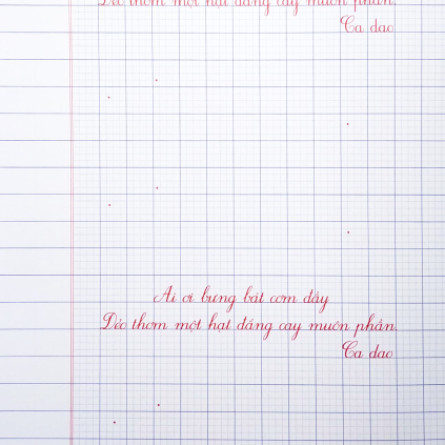 Dẻo thơm một hạt đắng cay muôn phần.
Ca dao
Ai ơi bưng bát cơm đầy
Dẻo thơm một hạt đắng cay muôn phần.
Ca dao